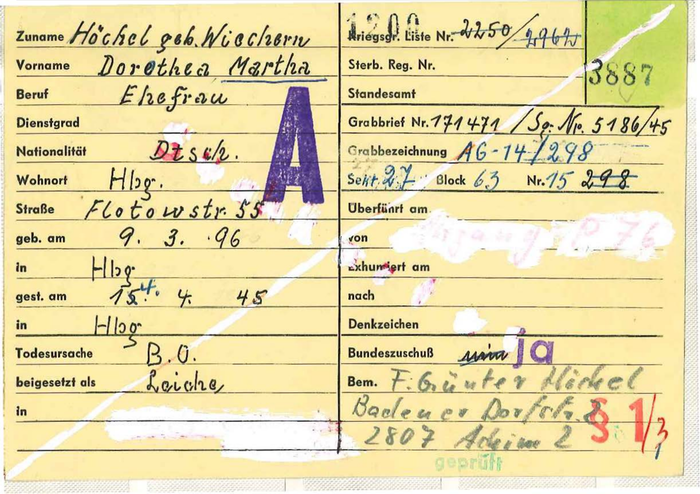 Zuname Höchel geb. Wiechern
Vorname Dorothea Martha
Beruf Ehefrau
Dienstgrad
Nationalität Dtsch.
Wohnort Hbg.
Straße Flotowstr. 55
geb. am 9. 3. 96
in Hbg
gest. am 15. 4. 45
in Hbg
Todesursache B.O.
beigesetzt als Leiche
in
A
1200
Kriegsgr. Liste Nr. 2250/2962
Sterb. Reg. Nr.
3887
Standesamt
Grabbrief Nr. 171471 / Sg. Nr. 5186/45
Grabbezeichnung AG-14/298
Sekt. 27 Block 63 Nr. 15 298
Überführt am
von P 76
Exhumiert am
nach
Denkzeichen
Bundeszuschuß ja
Bem. F. Günter Höchel
Badener Dorfstr. 2
2807 Achim 2
§ 1/3
geprüft